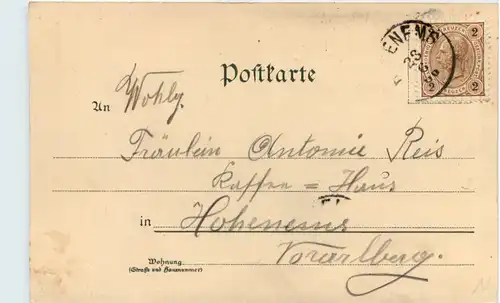 Postkarte
An Wohlg.
Fräulein Antonie Reis
Kaffee = Haus
in Hohenems
Vorarlberg.
Wohnung
(Straße und Hausnummer)
2 2